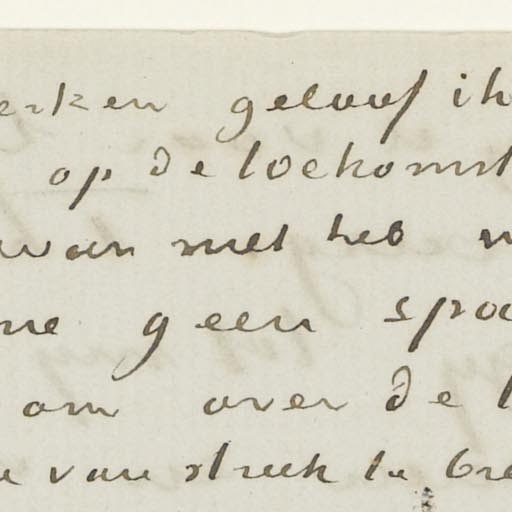 erken geloof ik
op de toekomst
van met heb
me geen spoo
om over de
van streek te bre